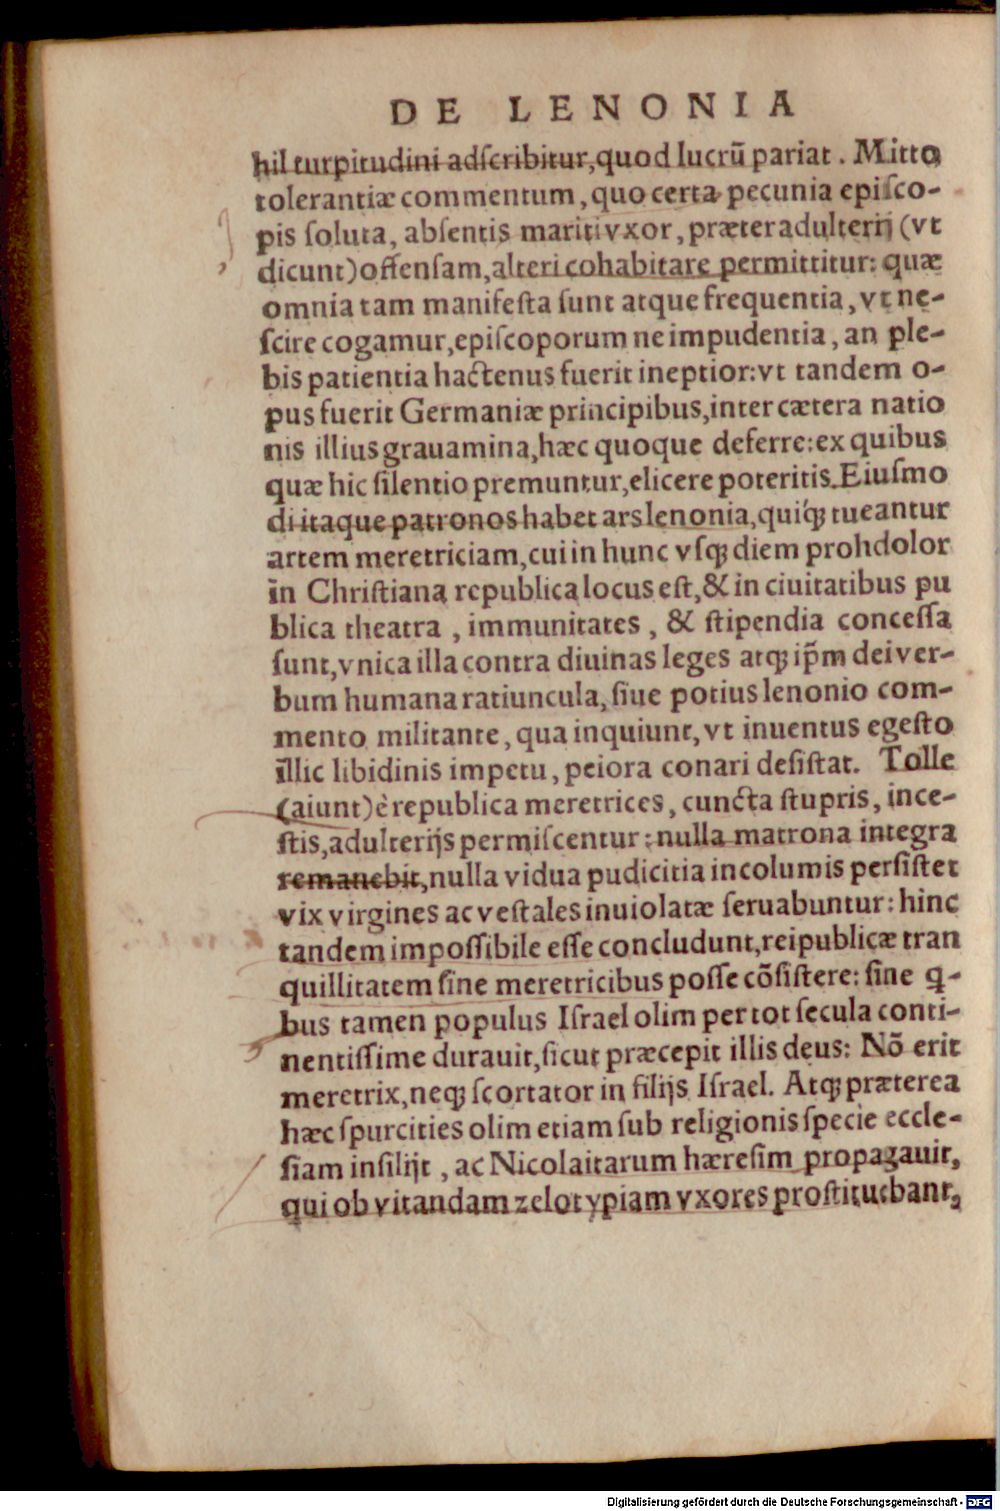 DE LENONIA
hil turpitudini adſcribitur,quod lucrū pariat. Mitto
tolerantiæ commentum, quo certa pecunia epiſco-
pis ſoluta, abſentis mariti vxor, præter adulterij (vt
dicunt)offenſam,alteri cohabitare permittitur: quæ
omnia tam manifeſta ſunt atque frequentia, vt ne-
ſcire cogamur,epiſcoporum ne impudentia, an ple-
bis patientia hactenus fuerit ineptior:vt tandem o-
pus fuerit Germaniæ principibus,inter cætera natio
nis illius grauamina,hæc quoque deferre:ex quibus
quæ hic ſilentio premuntur,elicere poteritis.Eiuſmo
di itaque patronos habet ars lenonia,quiq́ꝫ tueantur
artem meretriciam,cui in hunc vſqꝫ diem proh dolor
in Chriſtiana republica locus eſt,& in ciuitatibus pu
blica theatra, immunitates, & ſtipendia conceſſa
ſunt,vnica illa contra diuinas leges atqꝫ ip̄m dei ver-
bum humana ratiuncula, ſiue potius lenonio com-
mento militante, qua inquiunt, vt inuentus egeſto
illic libidinis impetu, peiora conari deſiſtat. Tolle
(aiunt)è republica meretrices, cuncta ſtupris, ince-
ſtis,adulterijs permiſcentur: nulla matrona integra
remanebit,nulla vidua pudicitia incolumis perſiſtet
vix virgines ac veſtales inuiolatæ ſeruabuntur: hinc
tandem impoſſibile eſſe concludunt,reipublicæ tran
quillitatem ſine meretricibus poſſe cōſiſtere: ſine q̄-
bus tamen populus Iſrael olim per tot ſecula conti-
nentiſſime durauit,ſicut præcepit illis deus: Nō erit
meretrix,neqꝫ ſcortator in filijs Iſrael. Atqꝫ præterea
hæc ſpurcities olim etiam ſub religionis ſpecie eccle-
ſiam inſilijt, ac Nicolaitarum hæreſim propagauit,
qui ob vitandam zelotypiam vxores proſtituebant,
Digitalisierung gefördert durch die Deutsche Forschungsgemeinschaft - DFG